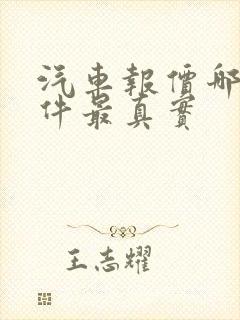 汽車報價哪
件最真實
王志耀